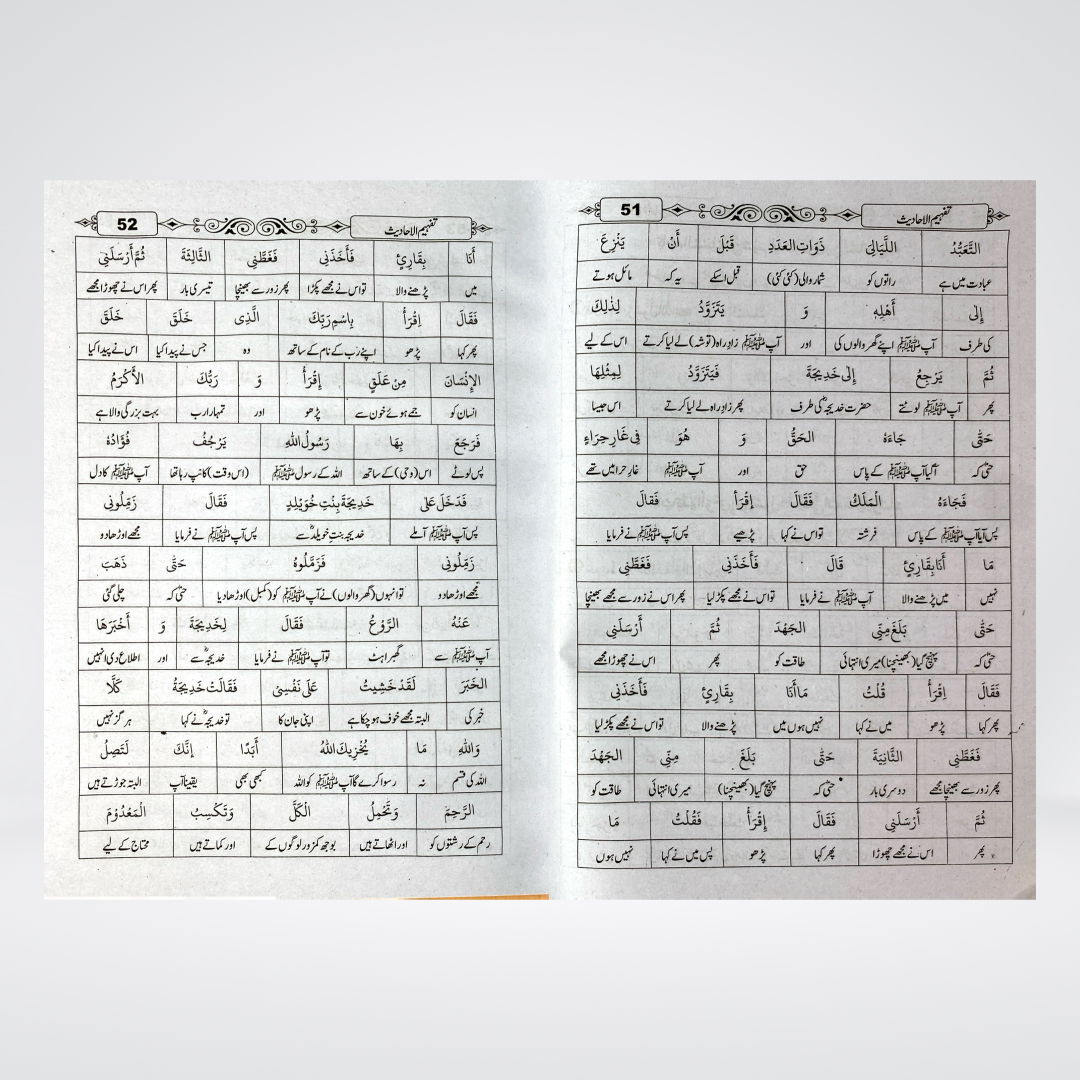 تفہیم الاحادیث 51
التَّعَبُّدُ اللَّيَالِيَ ذَوَاتِ الْعَدَدِ قَبْلَ أَنْ يَنْزِعَ
عبادت میں ہے راتوں کو شمار والی (کئی کئی) قبل اسکے یہ کہ مائل ہوتے
إِلَى أَهْلِهِ وَ يَتَزَوَّدُ لِذٰلِكَ
کی طرف آپ ﷺ اپنے گھر والوں کی اور آپ ﷺ زادِ راہ (توشہ) لے لیا کرتے اس کے لیے
ثُمَّ يَرْجِعُ إِلَى خَدِيجَةَ فَيَتَزَوَّدُ لِمِثْلِهَا
پھر آپ ﷺ لوٹتے حضرت خدیجہؓ کی طرف پھر زادِ راہ لے لیا کرتے اس جیسا
حَتَّى جَاءَهُ الحَقُّ وَ هُوَ فِي غَارِ حِرَاءٍ
حتیٰ کہ آگیا آپ ﷺ کے پاس حق اور آپ ﷺ غارِ حرا میں تھے
فَجَاءَهُ الْمَلَكُ فَقَالَ اِقْرَأْ فَقَالَ
پس آیا آپ ﷺ کے پاس فرشتہ تو اس نے کہا پڑھیے پس آپ ﷺ نے فرمایا
مَا أَنَا بِقَارِئٍ قَالَ فَأَخَذَنِي فَغَطَّنِي
نہیں میں پڑھنے والا آپ ﷺ نے فرمایا تو اس نے مجھے پکڑ لیا پھر اس نے زور سے مجھے بھینچا
حَتَّى بَلَغَ مِنِّي الجَهْدَ ثُمَّ أَرْسَلَنِي
حتیٰ کہ پہنچ گیا (بھینچنا) میری انتہائی طاقت کو پھر اس نے چھوڑا مجھے
فَقَالَ اِقْرَأْ قُلْتُ مَا أَنَا بِقَارِئٍ فَأَخَذَنِي
پھر کہا پڑھو میں نے کہا نہیں ہوں میں پڑھنے والا تو اس نے مجھے پکڑ لیا
فَغَطَّنِي الثَّانِيَةَ حَتَّى بَلَغَ مِنِّي الجَهْدَ
پھر زور سے بھینچا مجھے دوسری بار حتیٰ کہ پہنچ گیا (بھینچنا) میری انتہائی طاقت کو
ثُمَّ أَرْسَلَنِي فَقَالَ اِقْرَأْ فَقُلْتُ مَا
پھر اس نے مجھے چھوڑا پھر کہا پڑھو پس میں نے کہا نہیں ہوں
تفہیم الاحادیث 52
أَنَا بِقَارِئٍ فَأَخَذَنِي فَغَطَّنِي الثَّالِثَةَ ثُمَّ أَرْسَلَنِي
میں پڑھنے والا تو اس نے مجھے پکڑا پھر زور سے بھینچا تیسری بار پھر اس نے چھوڑا مجھے
فَقَالَ اِقْرَأْ بِاسْمِ رَبِّكَ الَّذِي خَلَقَ خَلَقَ
پھر کہا پڑھو اپنے رب کے نام کے ساتھ وہ جس نے پیدا کیا اس نے پیدا کیا
الإِنْسَانَ مِنْ عَلَقٍ اِقْرَأْ وَ رَبُّكَ الأَكْرَمُ
انسان کو جمے ہوئے خون سے پڑھو اور تمہارا رب بہت بزرگی والا ہے
فَرَجَعَ بِهَا رَسُولُ اللهِ يَرْجُفُ فُؤَادُهُ
پس لوٹے اس (وحی) کے ساتھ اللہ کے رسول ﷺ (اس وقت) کانپ رہا تھا آپ ﷺ کا دل
فَدَخَلَ عَلَى خَدِيجَةَ بِنْتِ خُوَيْلِدٍ فَقَالَ زَمِّلُونِي
پس آپ ﷺ آملے خدیجہ بنتِ خویلدؓ سے پس آپ ﷺ نے فرمایا مجھے اوڑھا دو
زَمِّلُونِي فَزَمَّلُوهُ حَتَّى ذَهَبَ
مجھے اوڑھا دو تو انہوں (گھر والوں) نے آپ ﷺ کو (کمبل) اوڑھا دیا حتیٰ کہ چلی گئی
عَنْهُ الرَّوْعُ فَقَالَ لِخَدِيجَةَ وَ أَخْبَرَهَا
آپ ﷺ سے گھبراہٹ تو آپ ﷺ نے فرمایا خدیجہؓ سے اور اطلاع دی انہیں
الخَبَرَ لَقَدْ خَشِيتُ عَلَى نَفْسِي فَقَالَتْ خَدِيجَةُ كَلَّا
خبر کی البتہ مجھے خوف ہو چکا ہے اپنی جان کا تو خدیجہؓ نے کہا ہرگز نہیں
وَاللهِ مَا يُخْزِيكَ اللهُ أَبَدًا إِنَّكَ لَتَصِلُ
اللہ کی قسم نہ رسوا کرے گا آپ ﷺ کو اللہ کبھی بھی یقیناً آپ البتہ جوڑتے ہیں
الرَّحِمَ وَتَحْمِلُ الْكَلَّ وَتَكْسِبُ الْمَعْدُوْمَ
رحم کے رشتوں کو اور اٹھاتے ہیں بوجھ کمزور لوگوں کے اور کماتے ہیں محتاج کے لیے